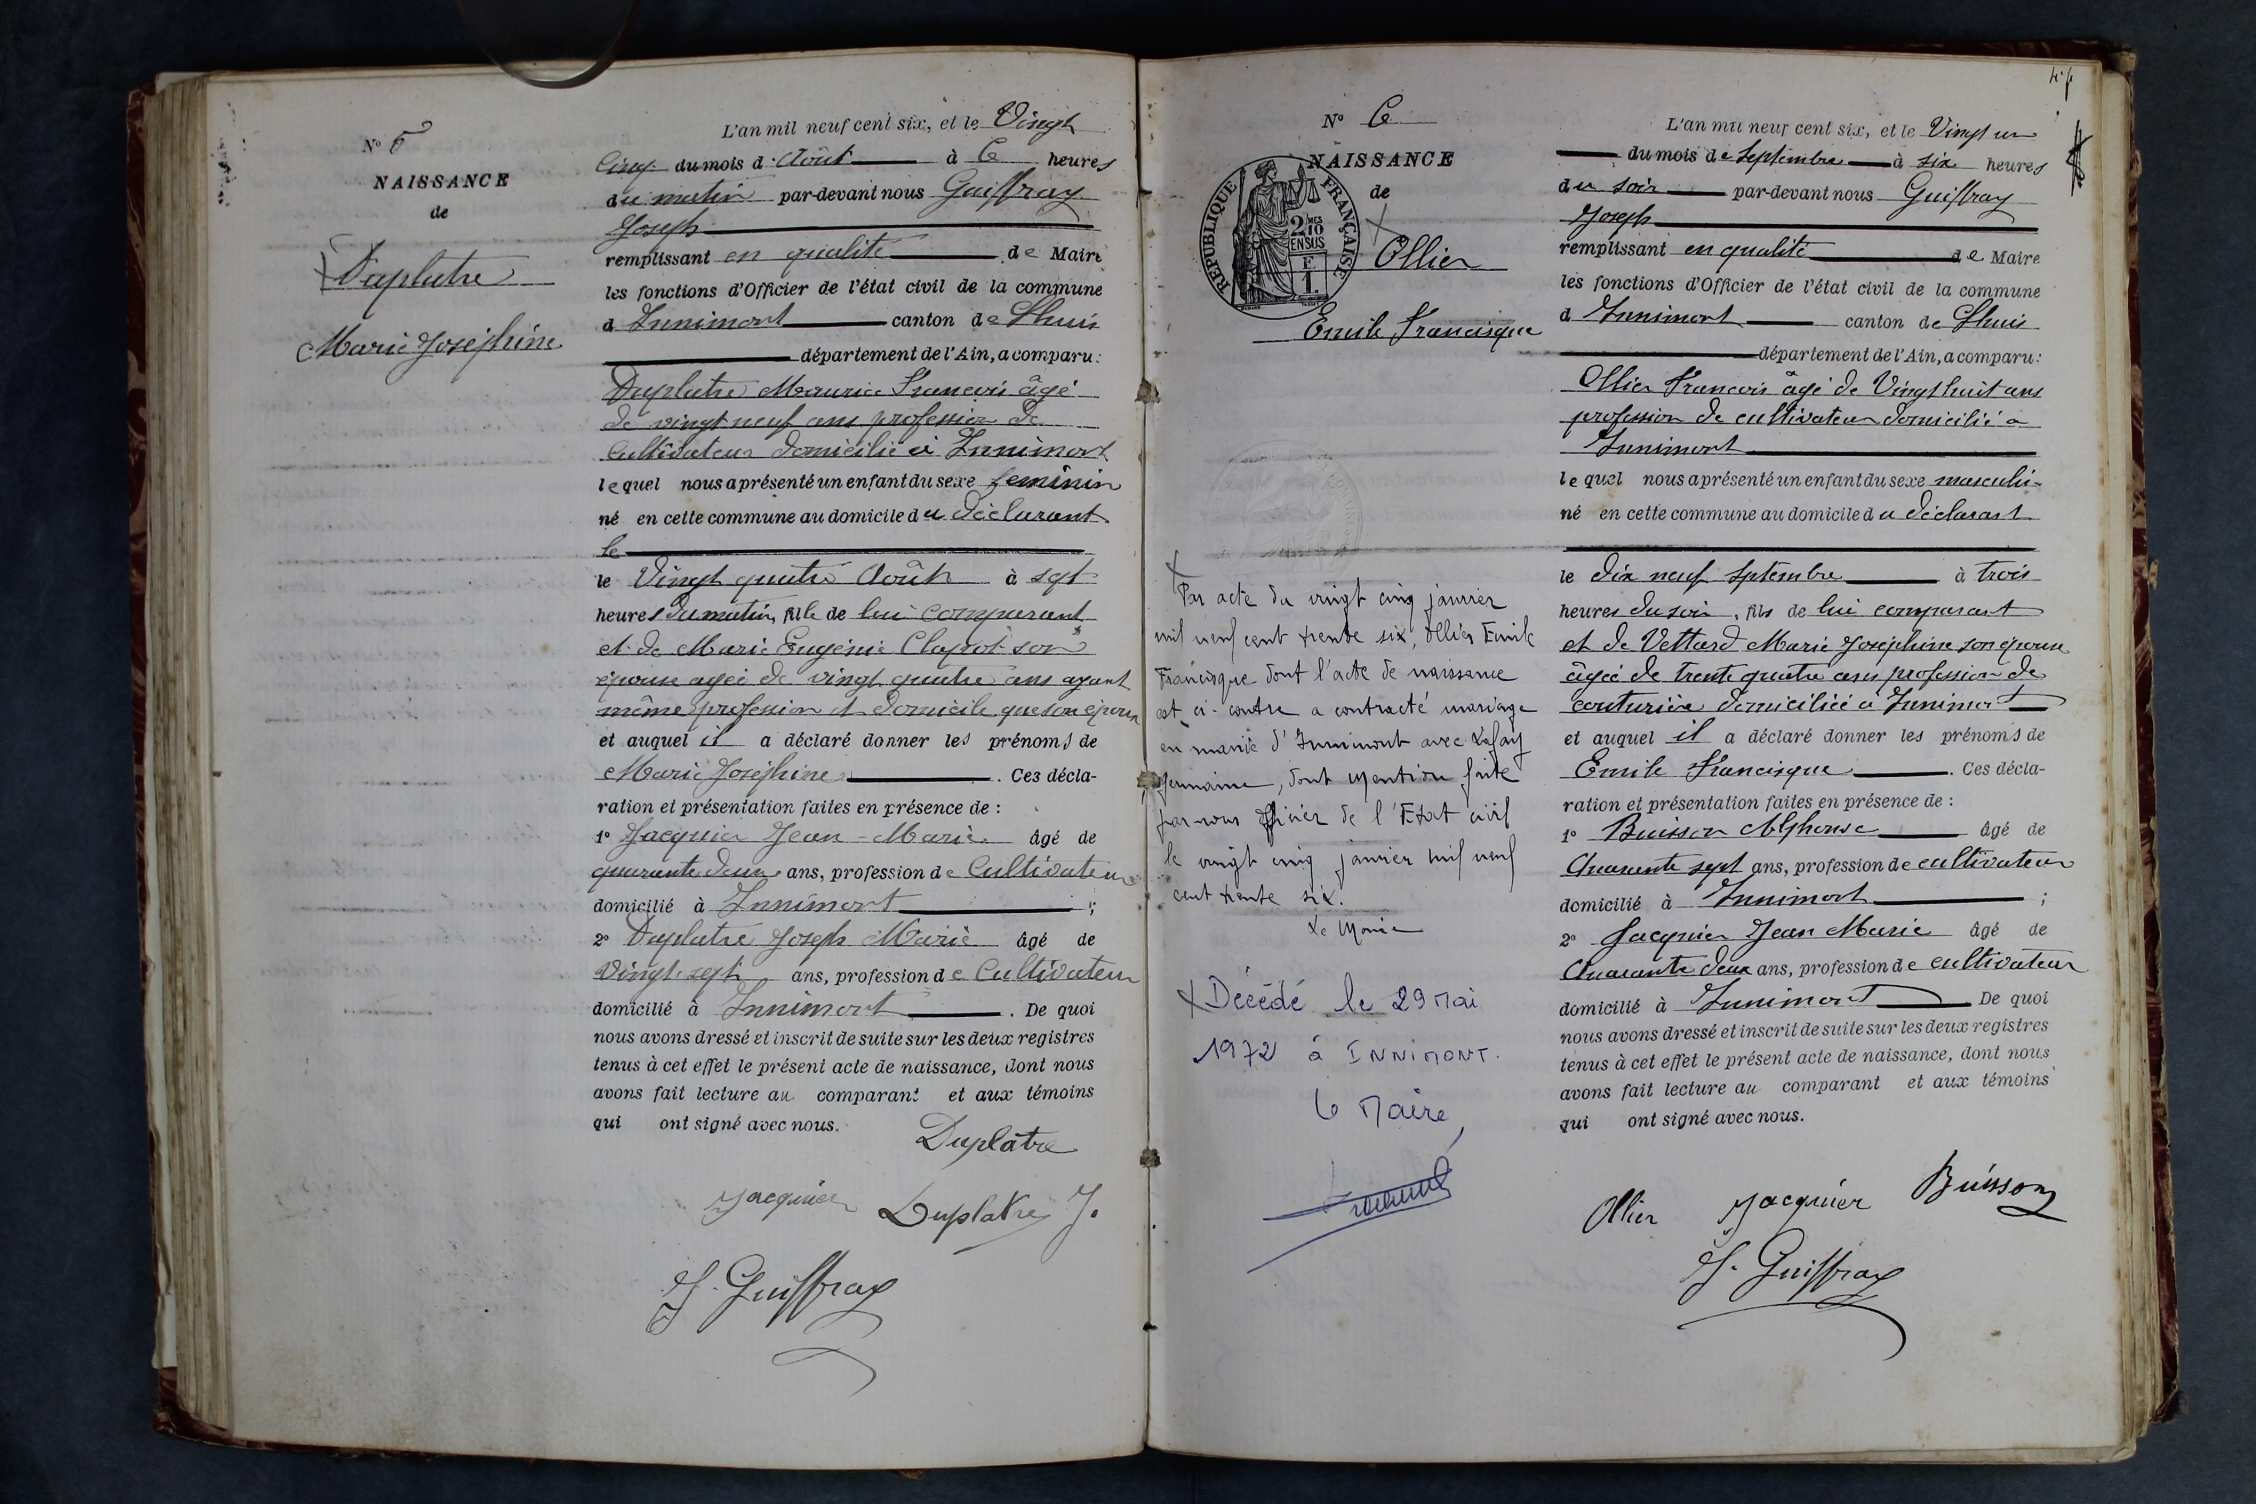 N° 5
NAISSANCE
de
Duplatre
Marie Joséphine
L'an mil neuf cent six, et le Vingt
Cinq du mois d'Août à 6 heures
du matin par-devant nous Guiffray
Joseph
remplissant en qualité de Maire
les fonctions d'Officier de l'état civil de la commune
d'Innimont canton de Lhuis
département de l'Ain, a comparu :
Duplatre Maurice François âgé
de vingt neuf ans profession de
Cultivateur domicilié à Innimont
lequel nous a présenté un enfant du sexe feminin
né en cette commune au domicile du déclarant
le
le Vingt quatre Août à sept
heures du matin, fille de lui comparant
et de Marie Eugénie Clapot son
épouse agée de vingt quatre ans ayant
même profession et domicile que son époux
et auquel il a déclaré donner les prénoms de
Marie Joséphine . Ces décla-
ration et présentation faites en présence de :
1° Jacquier Jean-Marie âgé de
quarante deux ans, profession de Cultivateur
domicilié à Innimont ;
2° Duplatre Joseph Marie âgé de
Vingt-sept ans, profession de Cultivateur
domicilié à Innimont . De quoi
nous avons dressé et inscrit de suite sur les deux registres
tenus à cet effet le présent acte de naissance, dont nous
avons fait lecture au comparant et aux témoins
qui ont signé avec nous.
Duplâtre
Jacquier Duplatre J.
J. Guiffray
N° 6
NAISSANCE
de
RÉPUBLIQUE FRANÇAISE
2/10 MES
EN SUS
F.
1.
Ollier
Emile Francisque
Par acte du vingt cinq janvier
mil neuf cent trente six, Ollier Emile
Francisque dont l'acte de naissance
est ci-contre a contracté mariage
en mairie d'Innimont avec
Germaine, dont mention faite
par nous Officier de l'Etat civil
le vingt cinq janvier mil neuf
cent trente six.
Le Maire
Décédé le 29 Mai
1972 à INNIMONT.
Le Maire,
L'an mil neuf cent six, et le Vingt un
du mois de Septembre à six heures
du soir par-devant nous Guiffray
Joseph
remplissant en qualité de Maire
les fonctions d'Officier de l'état civil de la commune
d'Innimont canton de Lhuis
département de l'Ain, a comparu :
Ollier François âgé de Vingt huit ans
profession de cultivateur domicilié à
Innimont
lequel nous a présenté un enfant du sexe masculin
né en cette commune au domicile du déclarant
le dix neuf septembre à trois
heures du soir, fils de lui comparant
et de Vettard Marie Joséphine son épouse
âgée de trente quatre ans profession de
couturière domiciliée à Innimont
et auquel il a déclaré donner les prénoms de
Emile Francisque . Ces décla-
ration et présentation faites en présence de :
1° Buisson Alphonse âgé de
Quarante sept ans, profession de cultivateur
domicilié à Innimont ;
2° Jacquier Jean Marie âgé de
Quarante deux ans, profession de cultivateur
domicilié à Innimont De quoi
nous avons dressé et inscrit de suite sur les deux registres
tenus à cet effet le présent acte de naissance, dont nous
avons fait lecture au comparant et aux témoins
qui ont signé avec nous.
Ollier Jacquier Buisson
J. Guiffray